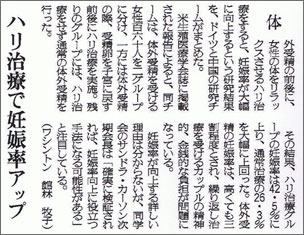 ハリ治療で妊娠率アップ
体外受精の前後に、
女性の体をリラッ
クスさせるハリ治
療をすると、妊娠率が大幅
に向上するという研究結果
を、ドイツと中国の研究チ
ームがまとめた。
米生殖医療学会誌に掲載
された報告によると、同チ
ームは、体外受精を受ける
女性百六十人を二グループ
に分け、一方には体外受精
の際、受精卵を子宮に戻す
前後にハリ治療を実施。残
りのグループには、ハリ治
療をせず通常の体外受精を
行った。
その結果、ハリ治療グル
ープの妊娠率は42・5%に
上り、通常治療の26・3%
を大幅に上回った。体外受
精の妊娠率は、高くても三
割程度とされ、繰り返し治
療を受けるカップルの精神
的、金銭的な負担が問題に
なっている。
妊娠率が向上する詳しい
理由は分からないが、同学
会のサンドラ・カーソン次
期会長は「確実に検証され
れば、妊娠率向上に役立つ
手法になる可能性がある」
と注目している。
（ワシントン 館林 牧子）